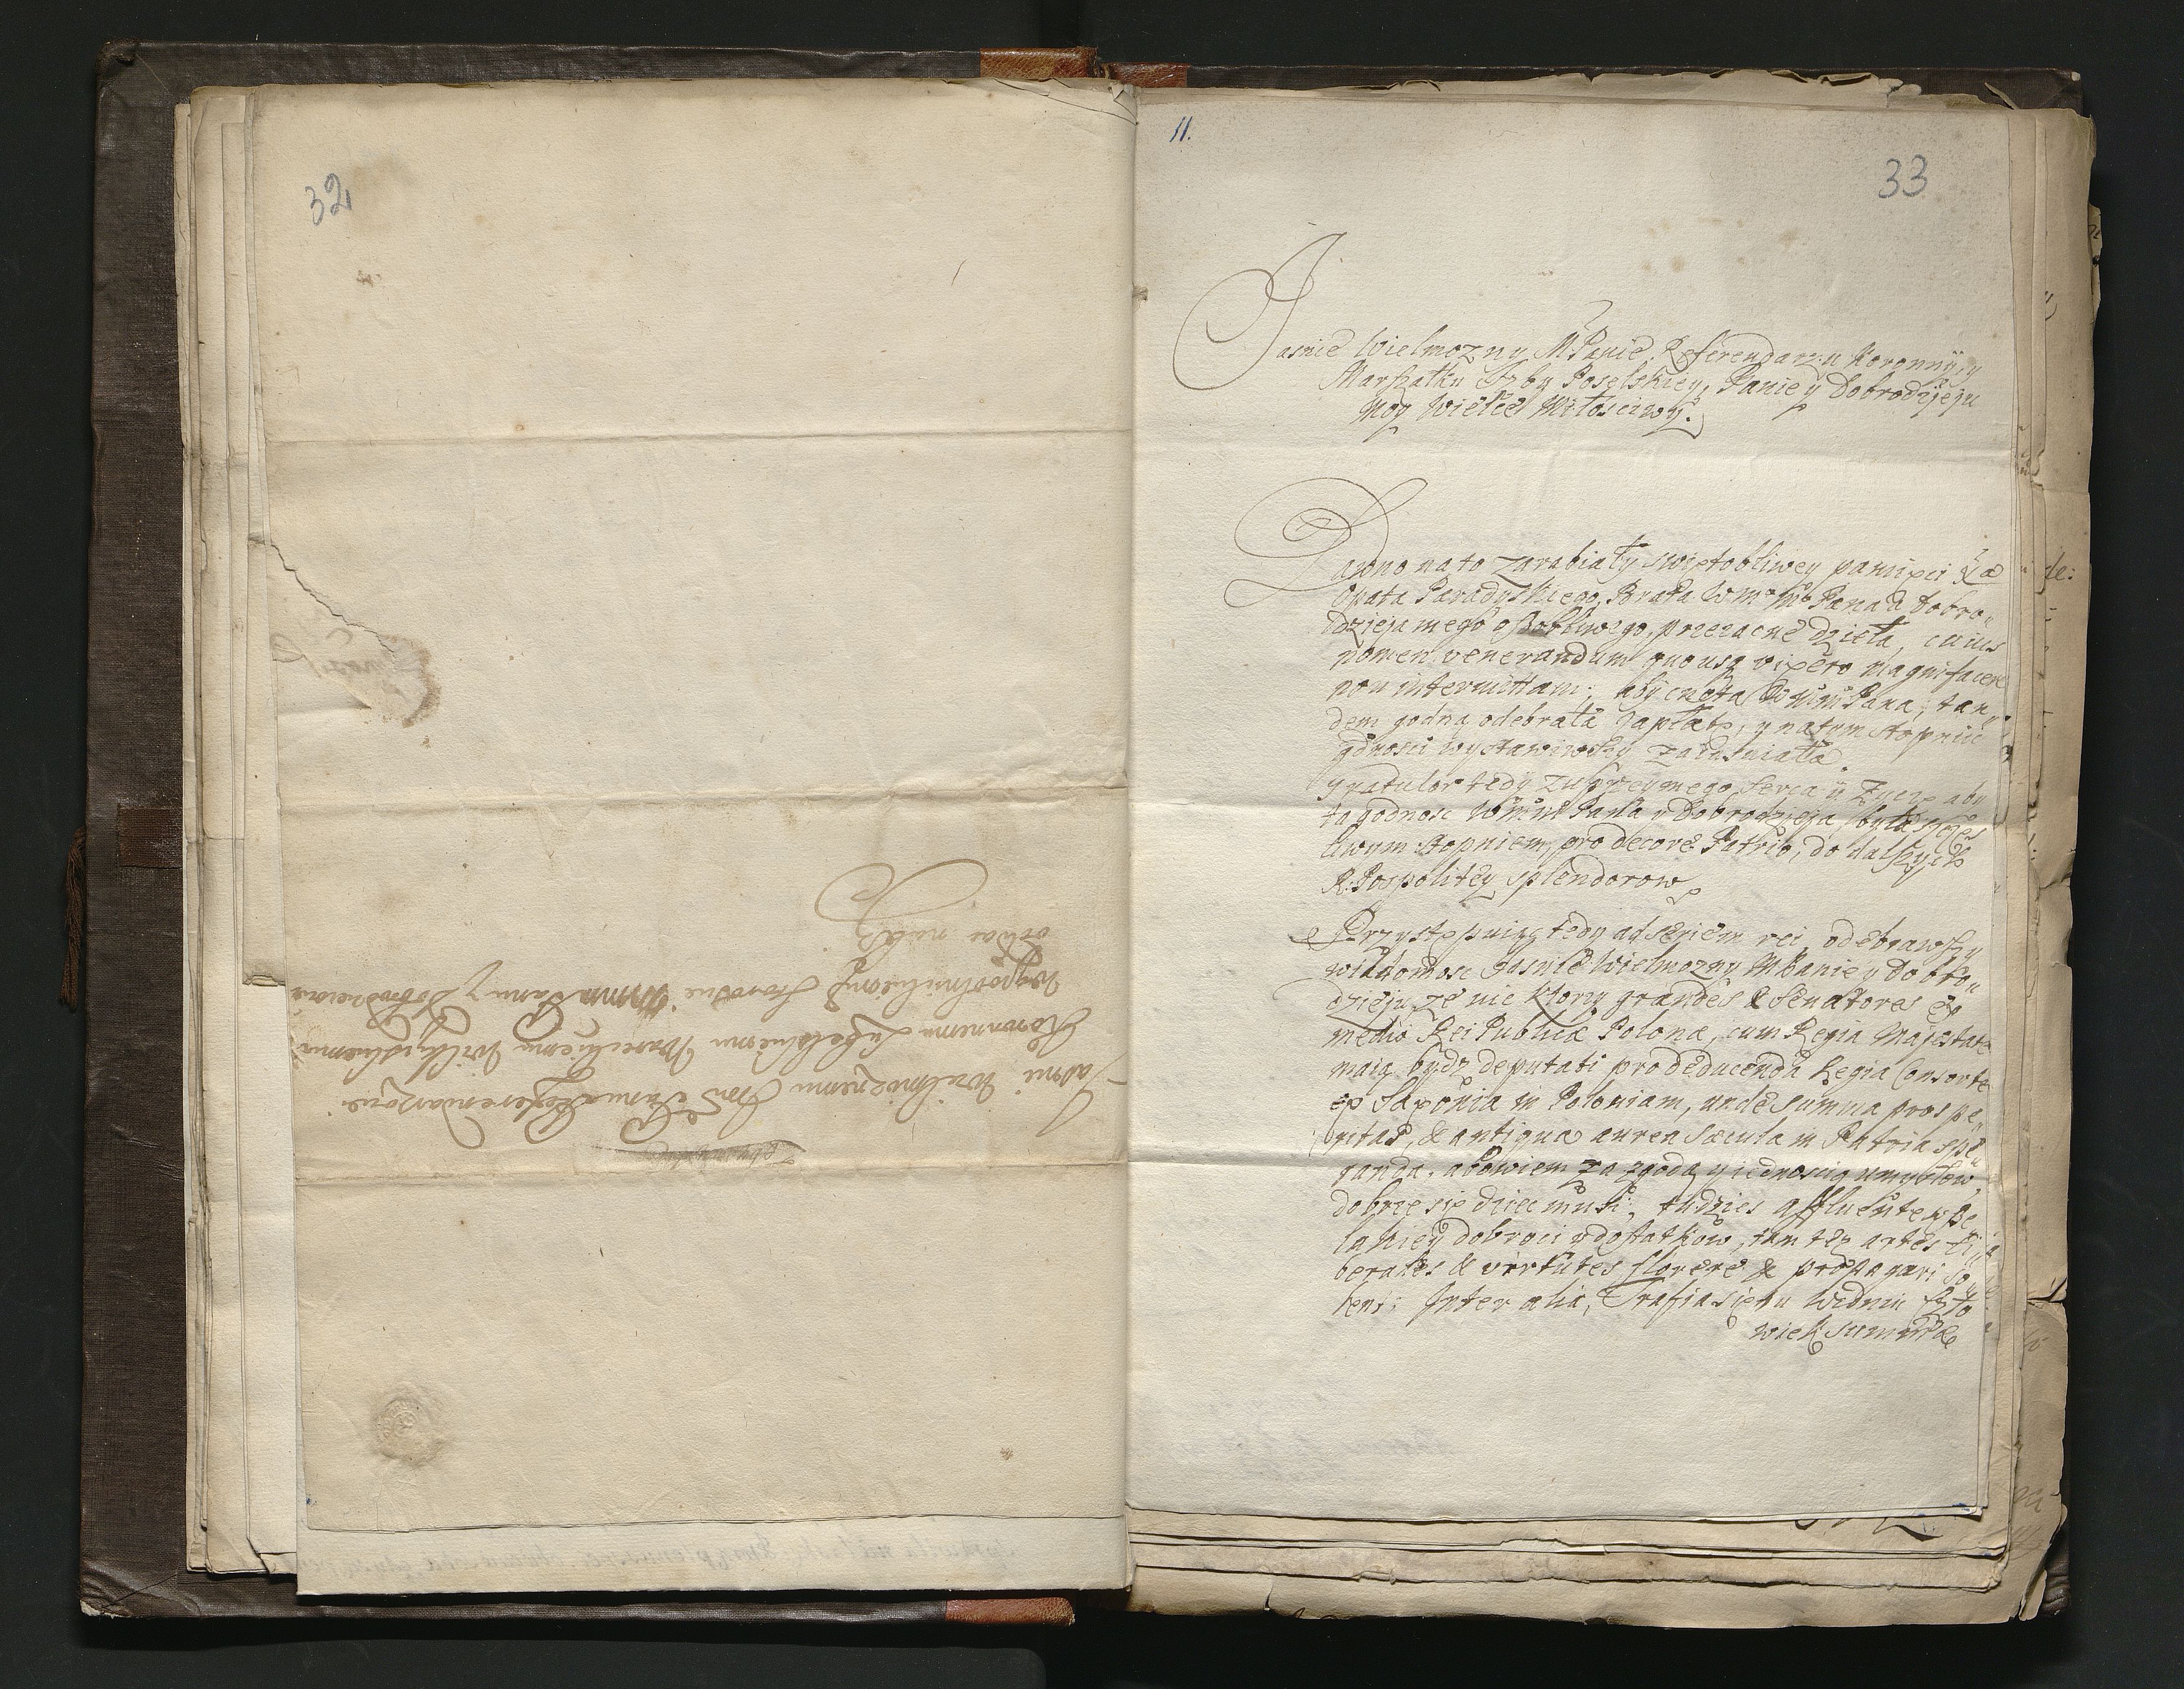 32
Jasnie Wielmożnemu Jmć Panu Referendarzowi
Koronnemu
Wypolmiłuiony Starosciе Wmm Panu y Dobrodzieiowi
oddac należy
11.
33
Jasnie Wielmozny M Panie Referendarzu Koronnÿ, y
Marszałku Izby Poselskiey, Panie y Dobrodzieju
moy Wielce Miłosciwy.
Dawno na to zarabiały swiętobliwey pamięci Xa
Opata Paradyskiego, Brata Wm mo Pana a Dobro„
dzieja mego osobliwego, przezacne dzieła, cuius
nomen venerandum quousq vixero magnifacere
non intermittam; aby cnota Wmm Pana, tan„
dem godną odebrała zapłatę, y na tem stopniu
gdnosci wystawiwszy zaiusniała.
gratulor tedy zuprzeymego serca y życzę aby
ta godnosc Wmm Pana y Dobrodzieja była szczes
liwym stopniem, pro decore Patrio, do dalszych
R: Pospolitey splendorow
Przystępuiąc tedy ad seriem rei, odebrawszy
wiadomosc Jasnie Wielmozny M Panie y Dobro„
dzieju, ze nie ktorzy grandes & Senatores ex
medio Rei Publicæ Polonæ, cum Regia Majestate
maią bydz deputati pro deducenda Regia Consorte
ex Saxonia in Poloniam, unde summa prospe„
ritas, & antiqua aurea sæcula in Patria spe„
randa. abowiem za zgodą y iednoscią umysłow,
dobrze się dziec musi, tudzies affluente wsze
lakiey dobroci y dostatkow, tam tez artes li„
berales & virtutes florere & propagari so„
lent; Inter alia, Trafia się tu Widniu Czło
wiek summæ